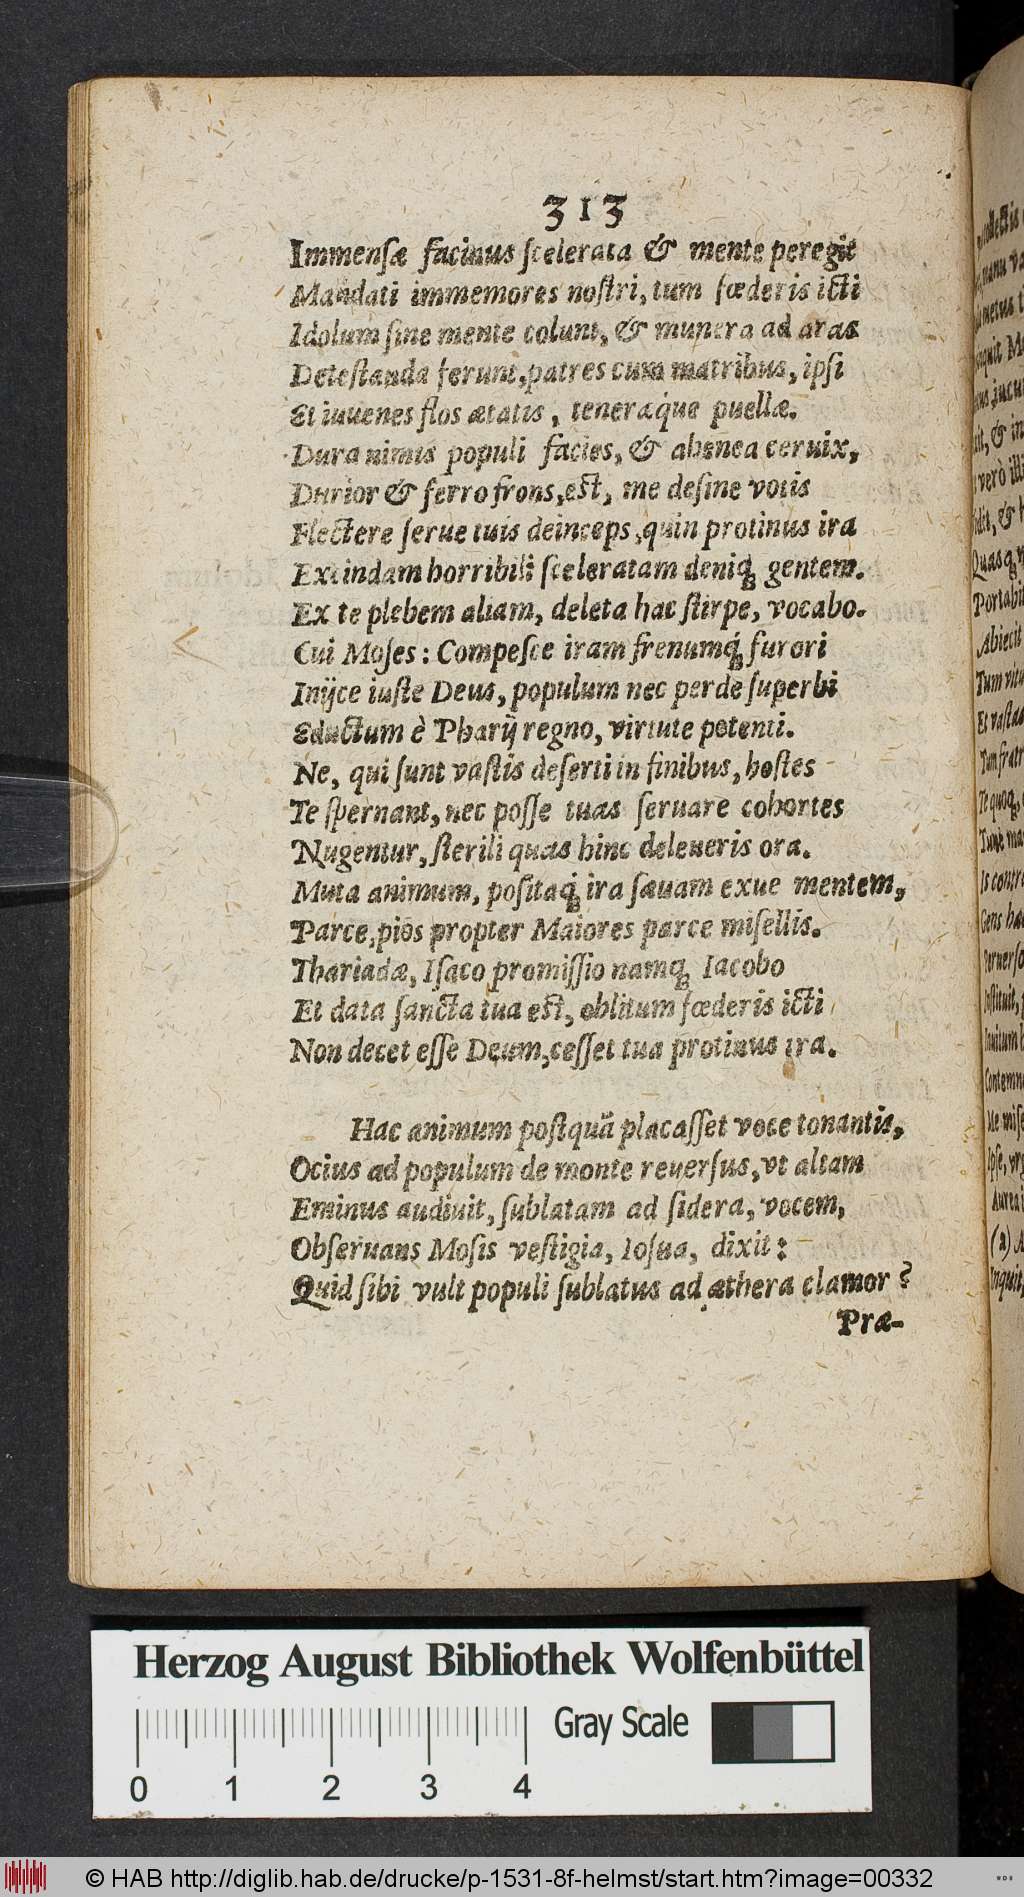 313
Immensæ facinus scelerata & mente peregit
Mandati immemores nostri, tum fœderis icti
Idolum sine mente colunt, & munera ad aras
Detestanda ferunt, patres cum matribus, ipsi
Et iuuenes flos ætatis, teneraq́ue puellæ.
Dura nimis populi facies, & ahenea ceruix,
Durior & ferro frons, est, me desine votis
Flectere serue tuis deinceps, quin protinus ira
Excindam horribili sceleratam deniq; gentem.
Ex te plebem aliam, deleta hac stirpe, vocabo.
Cui Moses: Compesce iram frenumq́; furori
Inijce iuste Deus, populum nec perde superbi
Eductum è Pharij regno, virtute potenti.
Ne, qui sunt vastis deserti in finibus, hostes
Te spernant, nec posse tuas seruare cohortes
Nugentur, sterili quas hinc deleueris ora.
Muta animum, positaq́; ira sæuam exue mentem,
Parce, pios propter Maiores parce misellis.
Thariadæ, Isaco promissio namq; Iacobo
Et data sancta tua est, oblitum fœderis icti
Non decet esse Deum, cesset tua protinus ira.
Hac animum postquã placasset voce tonantis,
Ocius ad populum de monte reuersus, vt altam
Eminus audiuit, sublatam ad sidera, vocem,
Obseruans Mosis vestigia, Iosua, dixit:
Quid sibi vult populi sublatus ad æthera clamor?
Præ-
Herzog August Bibliothek Wolfenbüttel
Gray Scale
0 1 2 3 4
© HAB http://diglib.hab.de/drucke/p-1531-8f-helmst/start.htm?image=00332